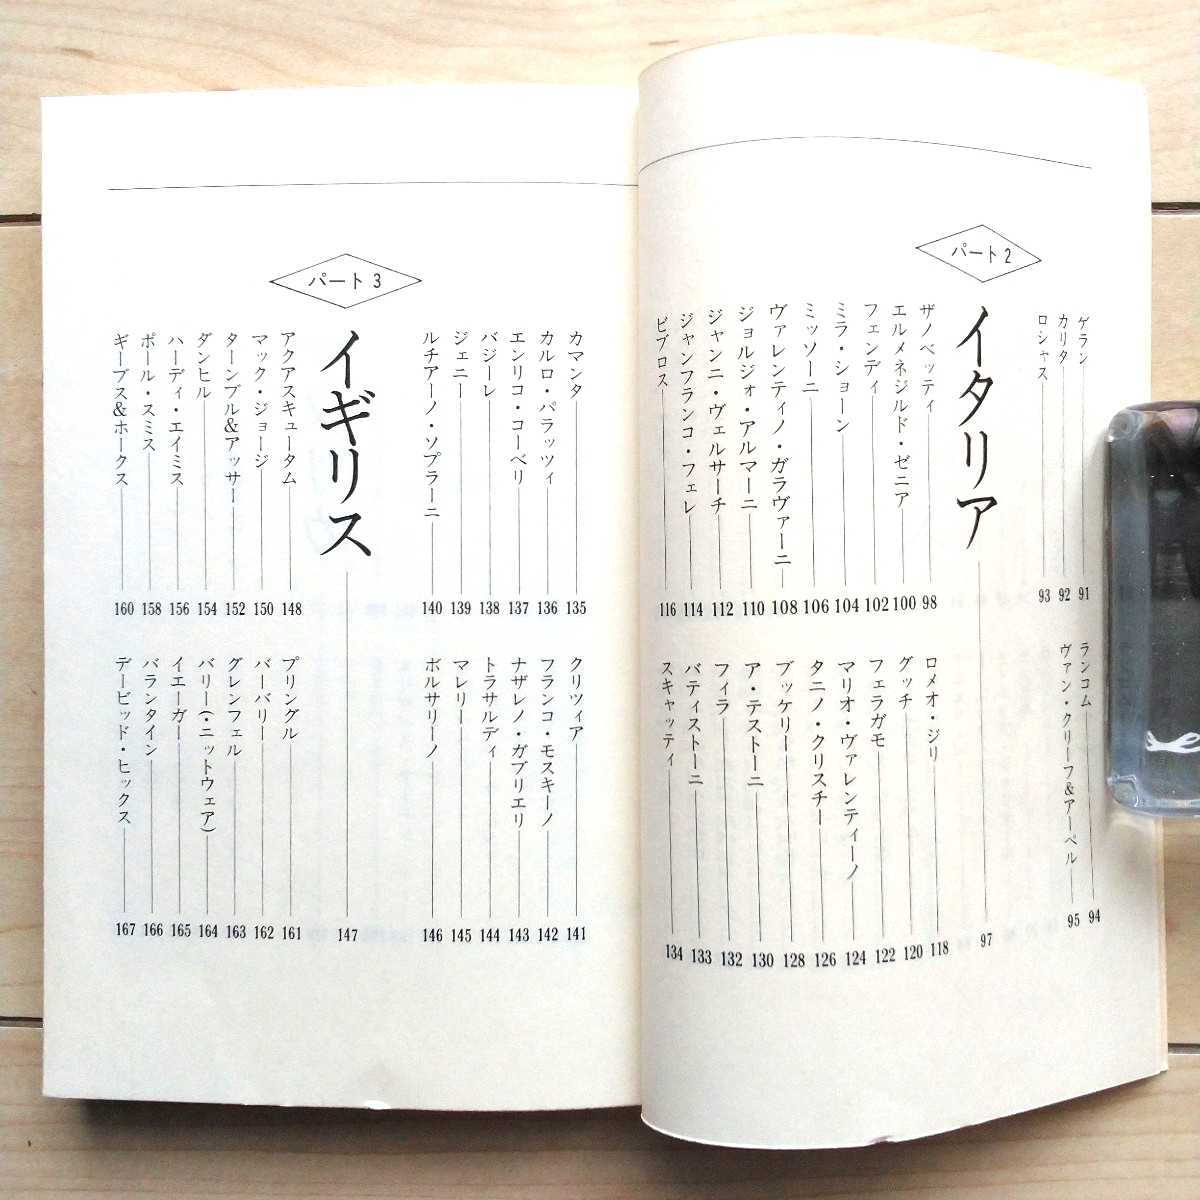 ゲラン 91
カリタ 92
ロシャス 93
ランコム 94
ヴァン・クリーフ&アーペル 95
パート2
イタリア 97
ザノベッティ 98
エルメネジルド・ゼニア 100
フェンディ 102
ミラ・ショーン 104
ミッソーニ 106
ヴァレンティノ・ガラヴァーニ 108
ジョルジォ・アルマーニ 110
ジャンニ・ヴェルサーチ 112
ジャンフランコ・フェレ 114
ビブロス 116
ロメオ・ジリ 118
グッチ 120
フェラガモ 122
マリオ・ヴァレンティーノ 124
タニノ・クリスチー 126
ブッケリー 128
ア・テストーニ 130
フィラ 132
バティストーニ 133
スキャッティ 134
カマンタ 135
カルロ・パラッツィ 136
エンリコ・コーベリ 137
バジーレ 138
ジェニー 139
ルチアーノ・ソプラーニ 140
クリツィア 141
フランコ・モスキーノ 142
ナザレノ・ガブリエリ 143
トラサルディ 144
マレリー 145
ボルサリーノ 146
パート3
イギリス 147
アクアスキュータム 148
マック・ジョージ 150
ターンブル&アッサー 152
ダンヒル 154
ハーディ・エイミス 156
ポール・スミス 158
ギーブス&ホークス 160
プリングル 161
バーバリー 162
グレンフェル 163
バリー(・ニットウェア) 164
イエーガー 165
バランタイン 166
デービッド・ヒックス 167